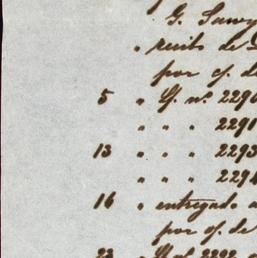 G. Sawy
" recibo de
por c/. de
5 " G/. nº 2290
" " " 2291
13 " " " 2293
" " " 2294
16 " entregado a
por c/. de
23 " G/. nº 2292